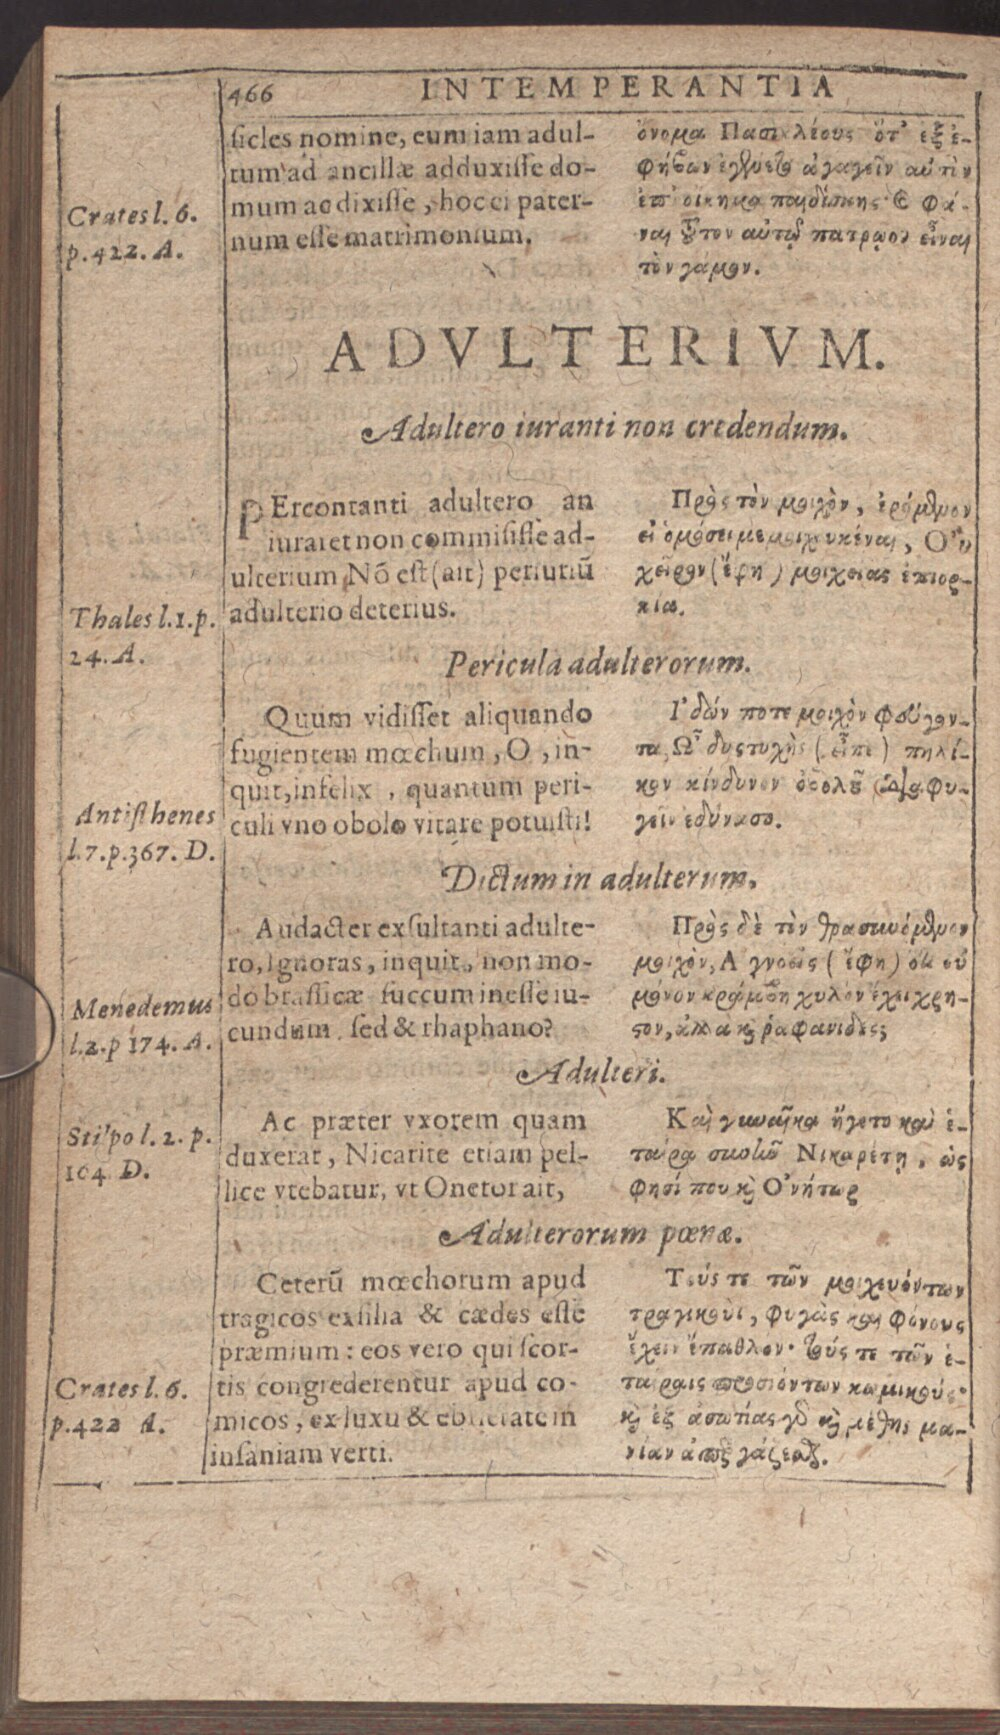 466
INTEMPERANTIA
sicles nomine, cum iam adul-
tum ad ancillæ adduxisse do-
mum ac dixisse, hoc ei pater-
num esse matrimonium.
Crates l. 6.
p. 422. A.
ὄνομα Πασικλέους ὅτ' ἐξ ἐ-
φήβων ἐγένετο ἀγαγεῖν αὐτὸν
ἐπ' οἴκημα παιδίσκης καὶ φά-
ναι τοῦτον αὐτῷ πατρῷον εἶναι
τὸν γάμον.
ADVLTERIVM.
Adultero iuranti non credendum.
PErcontanti adultero an
iuraret non commisisse ad-
ulterium, Nō est (ait) periuriū
adulterio deterius.
Thales l. 1. p.
24. A.
Πρὸς τὸν μοιχὸν, ἐρόμενον
εἰ ὀμόσει με μοιχευκέναι, Οὐ
χεῖρον (ἔφη) μοιχείας ἐπιορ-
κία.
Pericula adulterorum.
Quum vidisset aliquando
fugientem mœchum, O, in-
quit, infelix, quantum peri-
culi vno obolo vitare potuisti!
Antisthenes
l. 7. p. 367. D.
Ἰδών ποτε μοιχὸν φεύγον-
τα, Ὦ δυστυχὴς (εἶπε) πηλί-
κον κίνδυνον ὀβολοῦ διαφυ-
γεῖν ἐδύνασο.
Dictum in adulterum.
Audacter exsultanti adulte-
ro, Ignoras, inquit, non mo-
do brassicæ succum inesse iu-
cundum sed & rhaphano?
Menedemus
l. 2. p 174. A.
Πρὸς δὲ τὸν θρασυνόμενον
μοιχὸν, Ἀγνοεῖς (ἔφη) ὅτι οὐ
μόνον κράμβη χυλὸν ἔχει χρη-
στον, ἀλλὰ καὶ ῥαφανίδες;
Adulteri.
Ac præter vxorem quam
duxerat, Nicarite etiam pel-
lice vtebatur, vt Onetor ait,
Stilpo l. 2. p.
104 D.
Καὶ γυναῖκα ἤγετο καὶ ἑ-
ταίρα συνῆν Νικαρέτῃ, ὥς
φησί που καὶ Ὀνήτωρ
Adulterorum pœnæ.
Ceterū mœchorum apud
tragicos exsilia & cædes esse
præmium: eos vero qui scor-
tis congrederentur apud co-
micos, ex luxu & ebrietate in
insaniam verti.
Crates l. 6.
p. 422 A.
Τούς τε τῶν μοιχευόντων
τραγικοὺς, φυγὰς καὶ φόνους
ἔχειν ἔπαθλον· τούς τε τῶν ἑ-
ταίραις προσιόντων κωμικούς·
καὶ ἐξ ἀσωτίας γὰρ καὶ μέθης μα-
νίαν ἀπεργάζεσθαι.